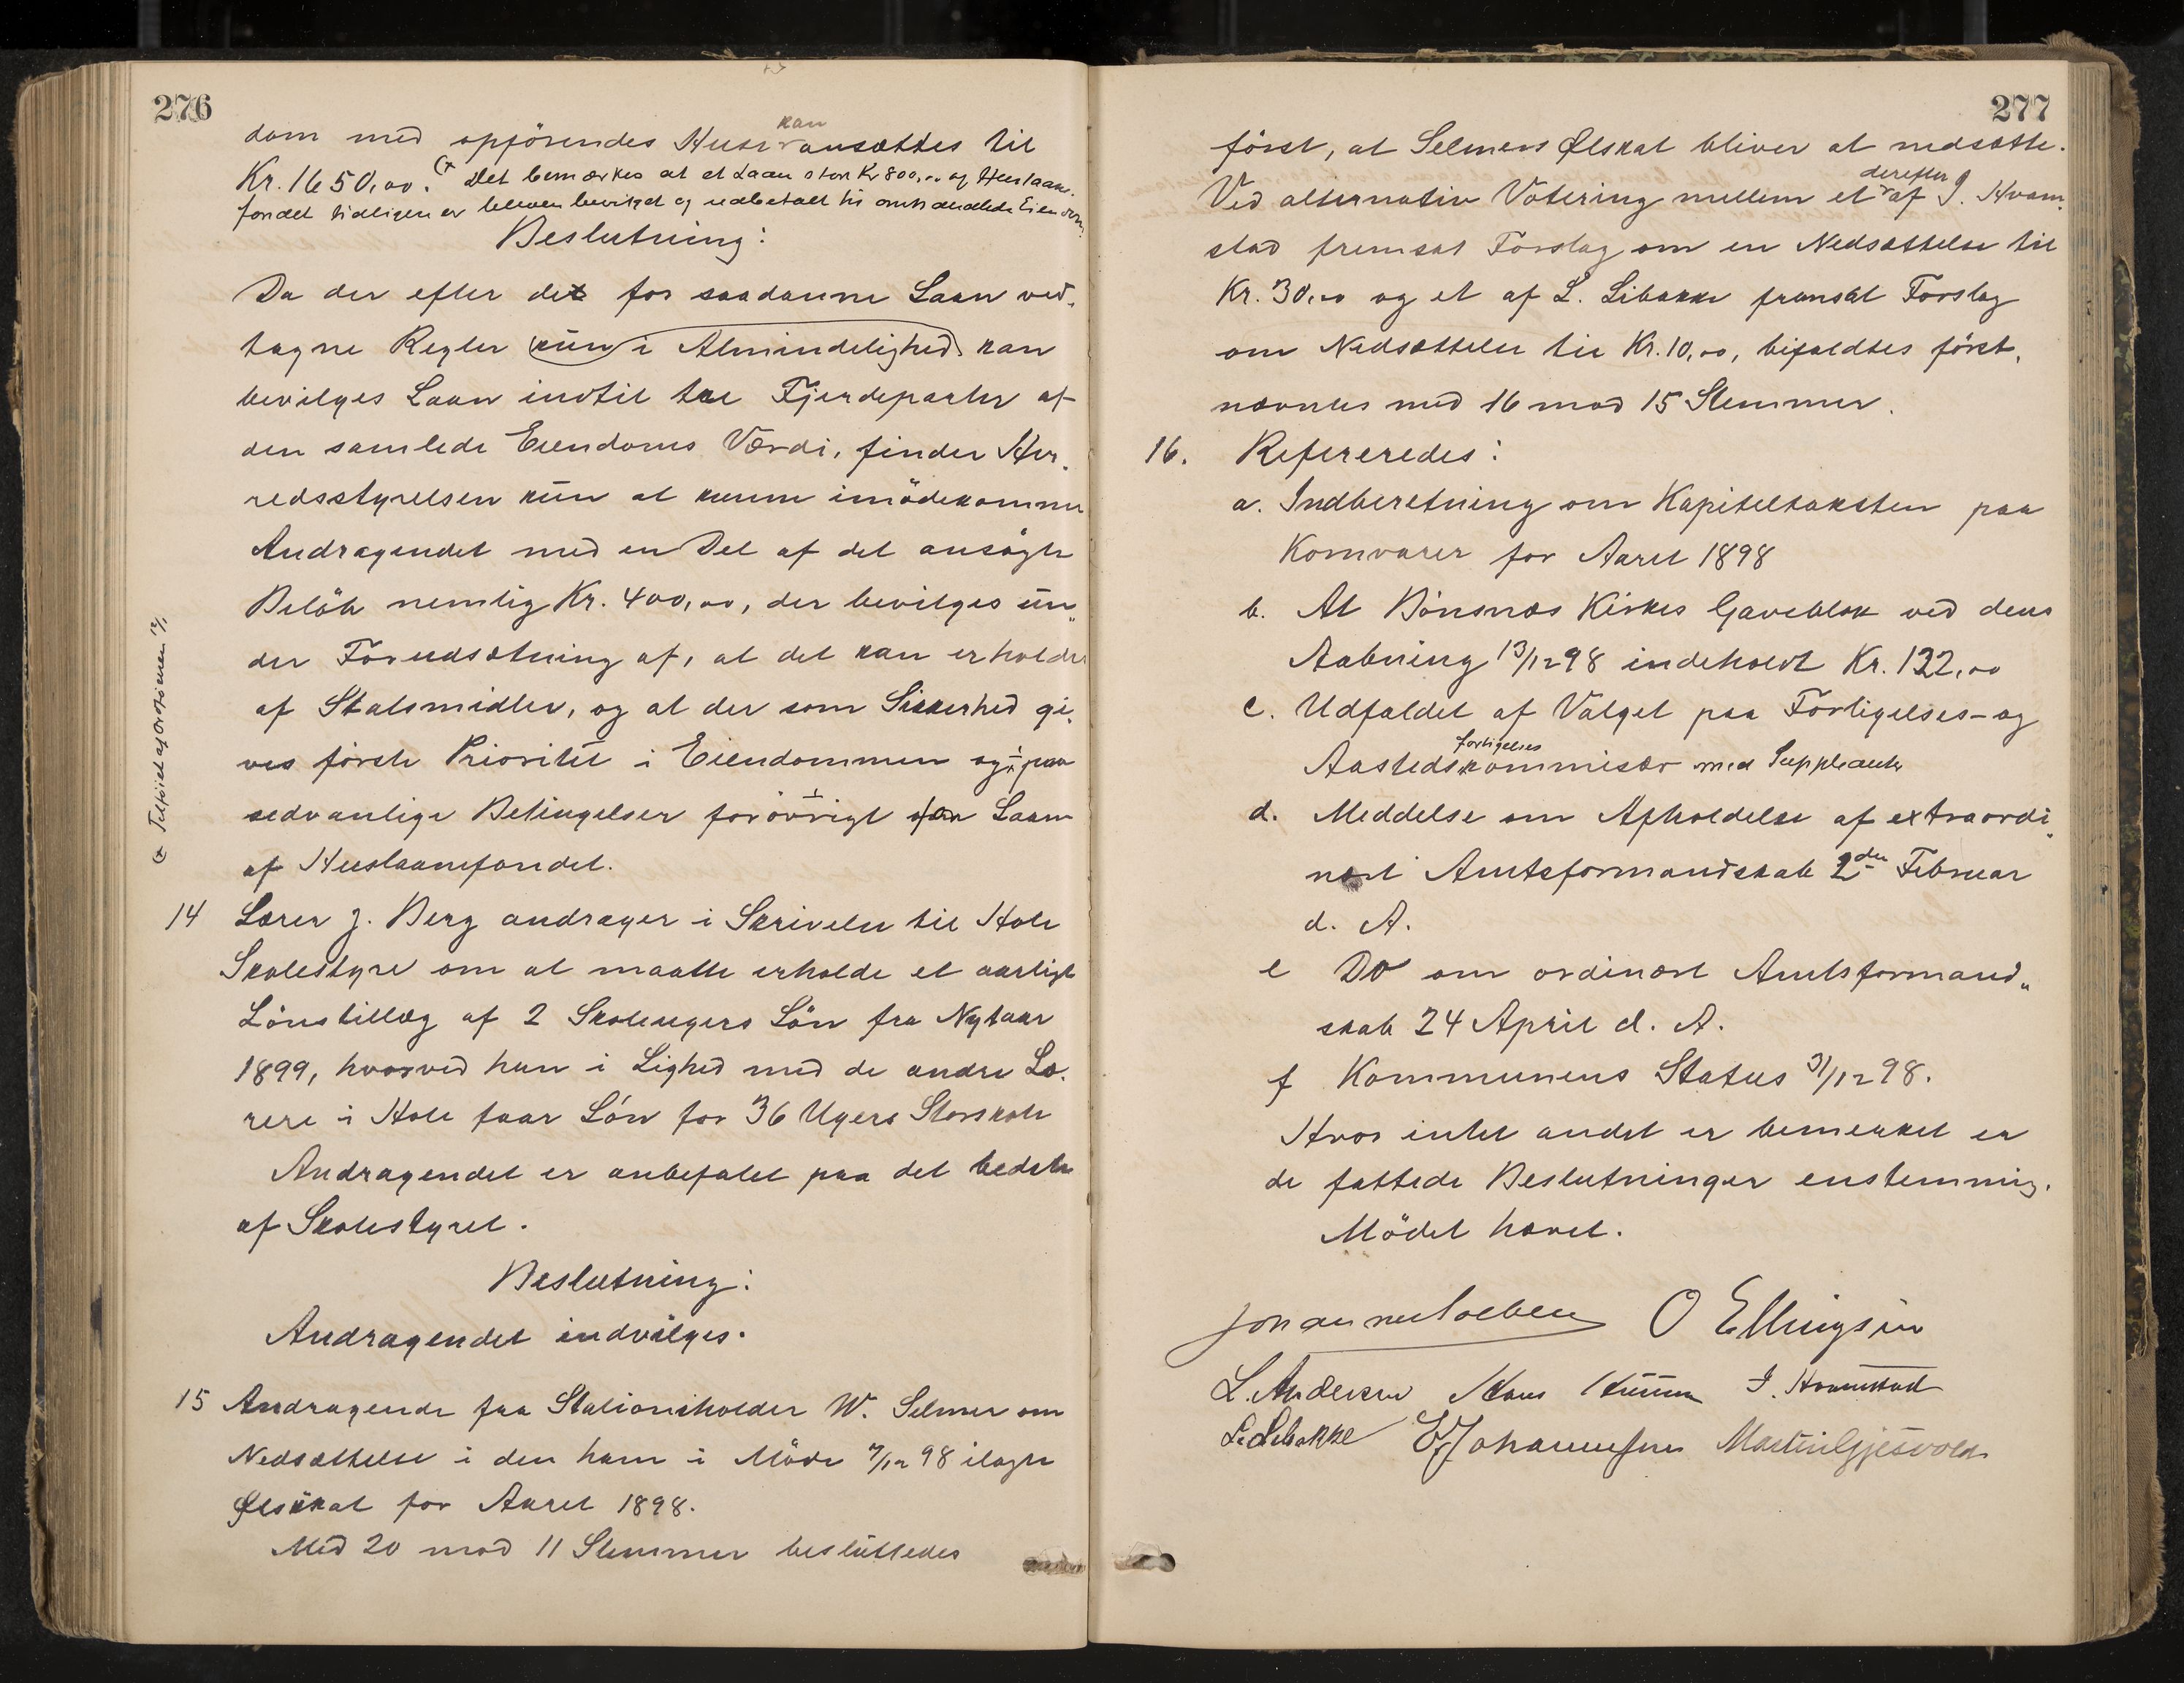 276
dom med opförendes Huse kan ansættes til
Kr. 1650,00. (x Det bemærkes at et Laan stort Kr 800,00 af Huslaane-
fondet tidligere er bleven bevilget og udbetalt til omhandlede Eiendom.
Beslutning:
Da der efter de for saadanne Laan ved-
tagne Regler kun i Almindelighed kan
bevilges Laan indtil tre Fjerdeparter af
den samlede Eiendoms Værdi, finder Her-
redsstyrelsen kun at kunne imödekomme
Andragendet med en Del af det ansögte
Belöb nemlig Kr. 400,00, der bevilges un-
der Forudsætning af, at det kan erholdes
af Statsmidler, og at der som Sikkerhed gi-
ves förste Prioritet i Eiendommen og i paa
sedvanlige Betingelser forövrigt for Laan
af Huslaanefondet.
(x Tilföiet af Ordföreren
14 Lærer J. Berg andrager i Skrivelse til Hole
Skolestyre om at maatte erholde et aarligt
Lönstillæg af 2 Skoleugers Lön fra Nytaar
1899, hvorved han i Lighed med de andre Læ-
rere i Hole faar Lön for 36 Ugers Storskole
Andragendet er anbefalet paa det bedste
af Skolestyret.
Beslutning:
Andragendet indvilges.
15 Andragende fra Stationsholder W. Selmer om
Nedsættelse i den ham i Möde 7/12 98 ilagte
Ølskat for Aaret 1898.
Med 20 mod 11 Stemmer besluttedes
277
först, at Selmers Ølskat bliver at nedsætte.
Ved alternativ Votering mellem et derefter af J. Hvam-
stad fremsat Forslag om en Nedsættelse til
Kr. 30,00 og et af L. Libakke fremsat Forslag
om Nedsættelse til Kr. 10,00, bifaldtes först-
nævntes med 16 mod 15 Stemmer.
16. Refereredes:
a. Indberetning om Kapiteltaksten paa
Kornvarer for Aaret 1898
b. At Bönsnæs Kirkes Gaveblok ved dens
Aabning 13/12 98 indeholdt Kr. 122,00
c. Udfaldet af Valget paa Forligelses- og
Aastedsforligelseskommisær med Suppleanter
d. Meddelse om Afholdelse af extraordi-
nært Amtsformandskab 2den Februar
d. A.
e Do om ordinært Amtsformand-
skab 24 April d. A.
f Kommunens Status 31/12 98.
Hvor intet andet er bemerket er
de fattede Beslutninger enstemmig.
Mödet hævet.
O Ellingsen
L. Andersen Hans J. Hvamstad
L. Libakke Johannessen Martin Gjesvold